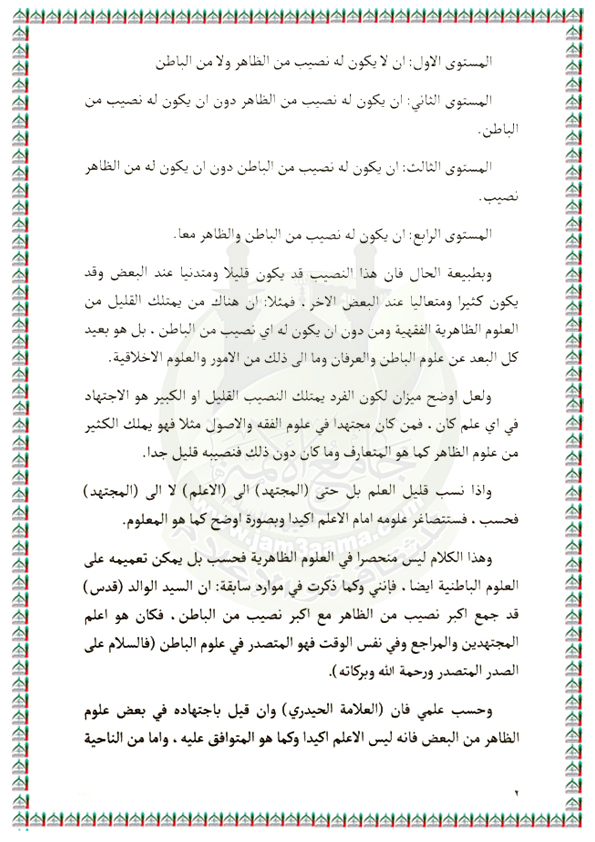 المستوى الاول: ان لا يكون له نصيب من الظاهر ولا من الباطن
المستوى الثاني: ان يكون له نصيب من الظاهر دون ان يكون له نصيب من
الباطن.
المستوى الثالث: ان يكون له نصيب من الباطن دون ان يكون له من الظاهر
نصيب.
المستوى الرابع: ان يكون له نصيب من الباطن والظاهر معا.
وبطبيعة الحال فان هذا النصيب قد يكون قليلا ومتدنيا عند البعض وقد
يكون كثيرا ومتعاليا عند البعض الاخر ، فمثلا: ان هناك من يمتلك القليل من
العلوم الظاهرية الفقهية ومن دون ان يكون له اي نصيب من الباطن ، بل هو بعيد
كل البعد عن علوم الباطن والعرفان وما الى ذلك من الامور والعلوم الاخلاقية.
ولعل اوضح ميزان لكون الفرد يمتلك النصيب القليل او الكبير هو الاجتهاد
في اي علم كان ، فمن كان مجتهدا في علوم الفقه والاصول مثلا فهو يملك الكثير
من علوم الظاهر كما هو المتعارف وما كان دون ذلك فنصيبه قليل جدا.
واذا نسب قليل العلم بل حتى (المجتهد) الى (الاعلم) لا الى (المجتهد)
فحسب ، فستتصاغر علومه امام الاعلم اكيدا وبصورة اوضح كما هو المعلوم.
وهذا الكلام ليس منحصرا في العلوم الظاهرية فحسب بل يمكن تعميمه على
العلوم الباطنية ايضا ، فإنني وكما ذكرت في موارد سابقة: ان السيد الوالد (قدس)
قد جمع اكبر نصيب من الظاهر مع اكبر نصيب من الباطن ، فكان هو اعلم
المجتهدين والمراجع وفي نفس الوقت فهو المتصدر في علوم الباطن (فالسلام على
الصدر المتصدر ورحمة الله وبركاته).
وحسب علمي فان (العلامة الحيدري) وان قيل باجتهاده في بعض علوم
الظاهر من البعض فانه ليس الاعلم اكيدا وكما هو المتوافق عليه ، واما من الناحية
٢
www.jam3aama.com